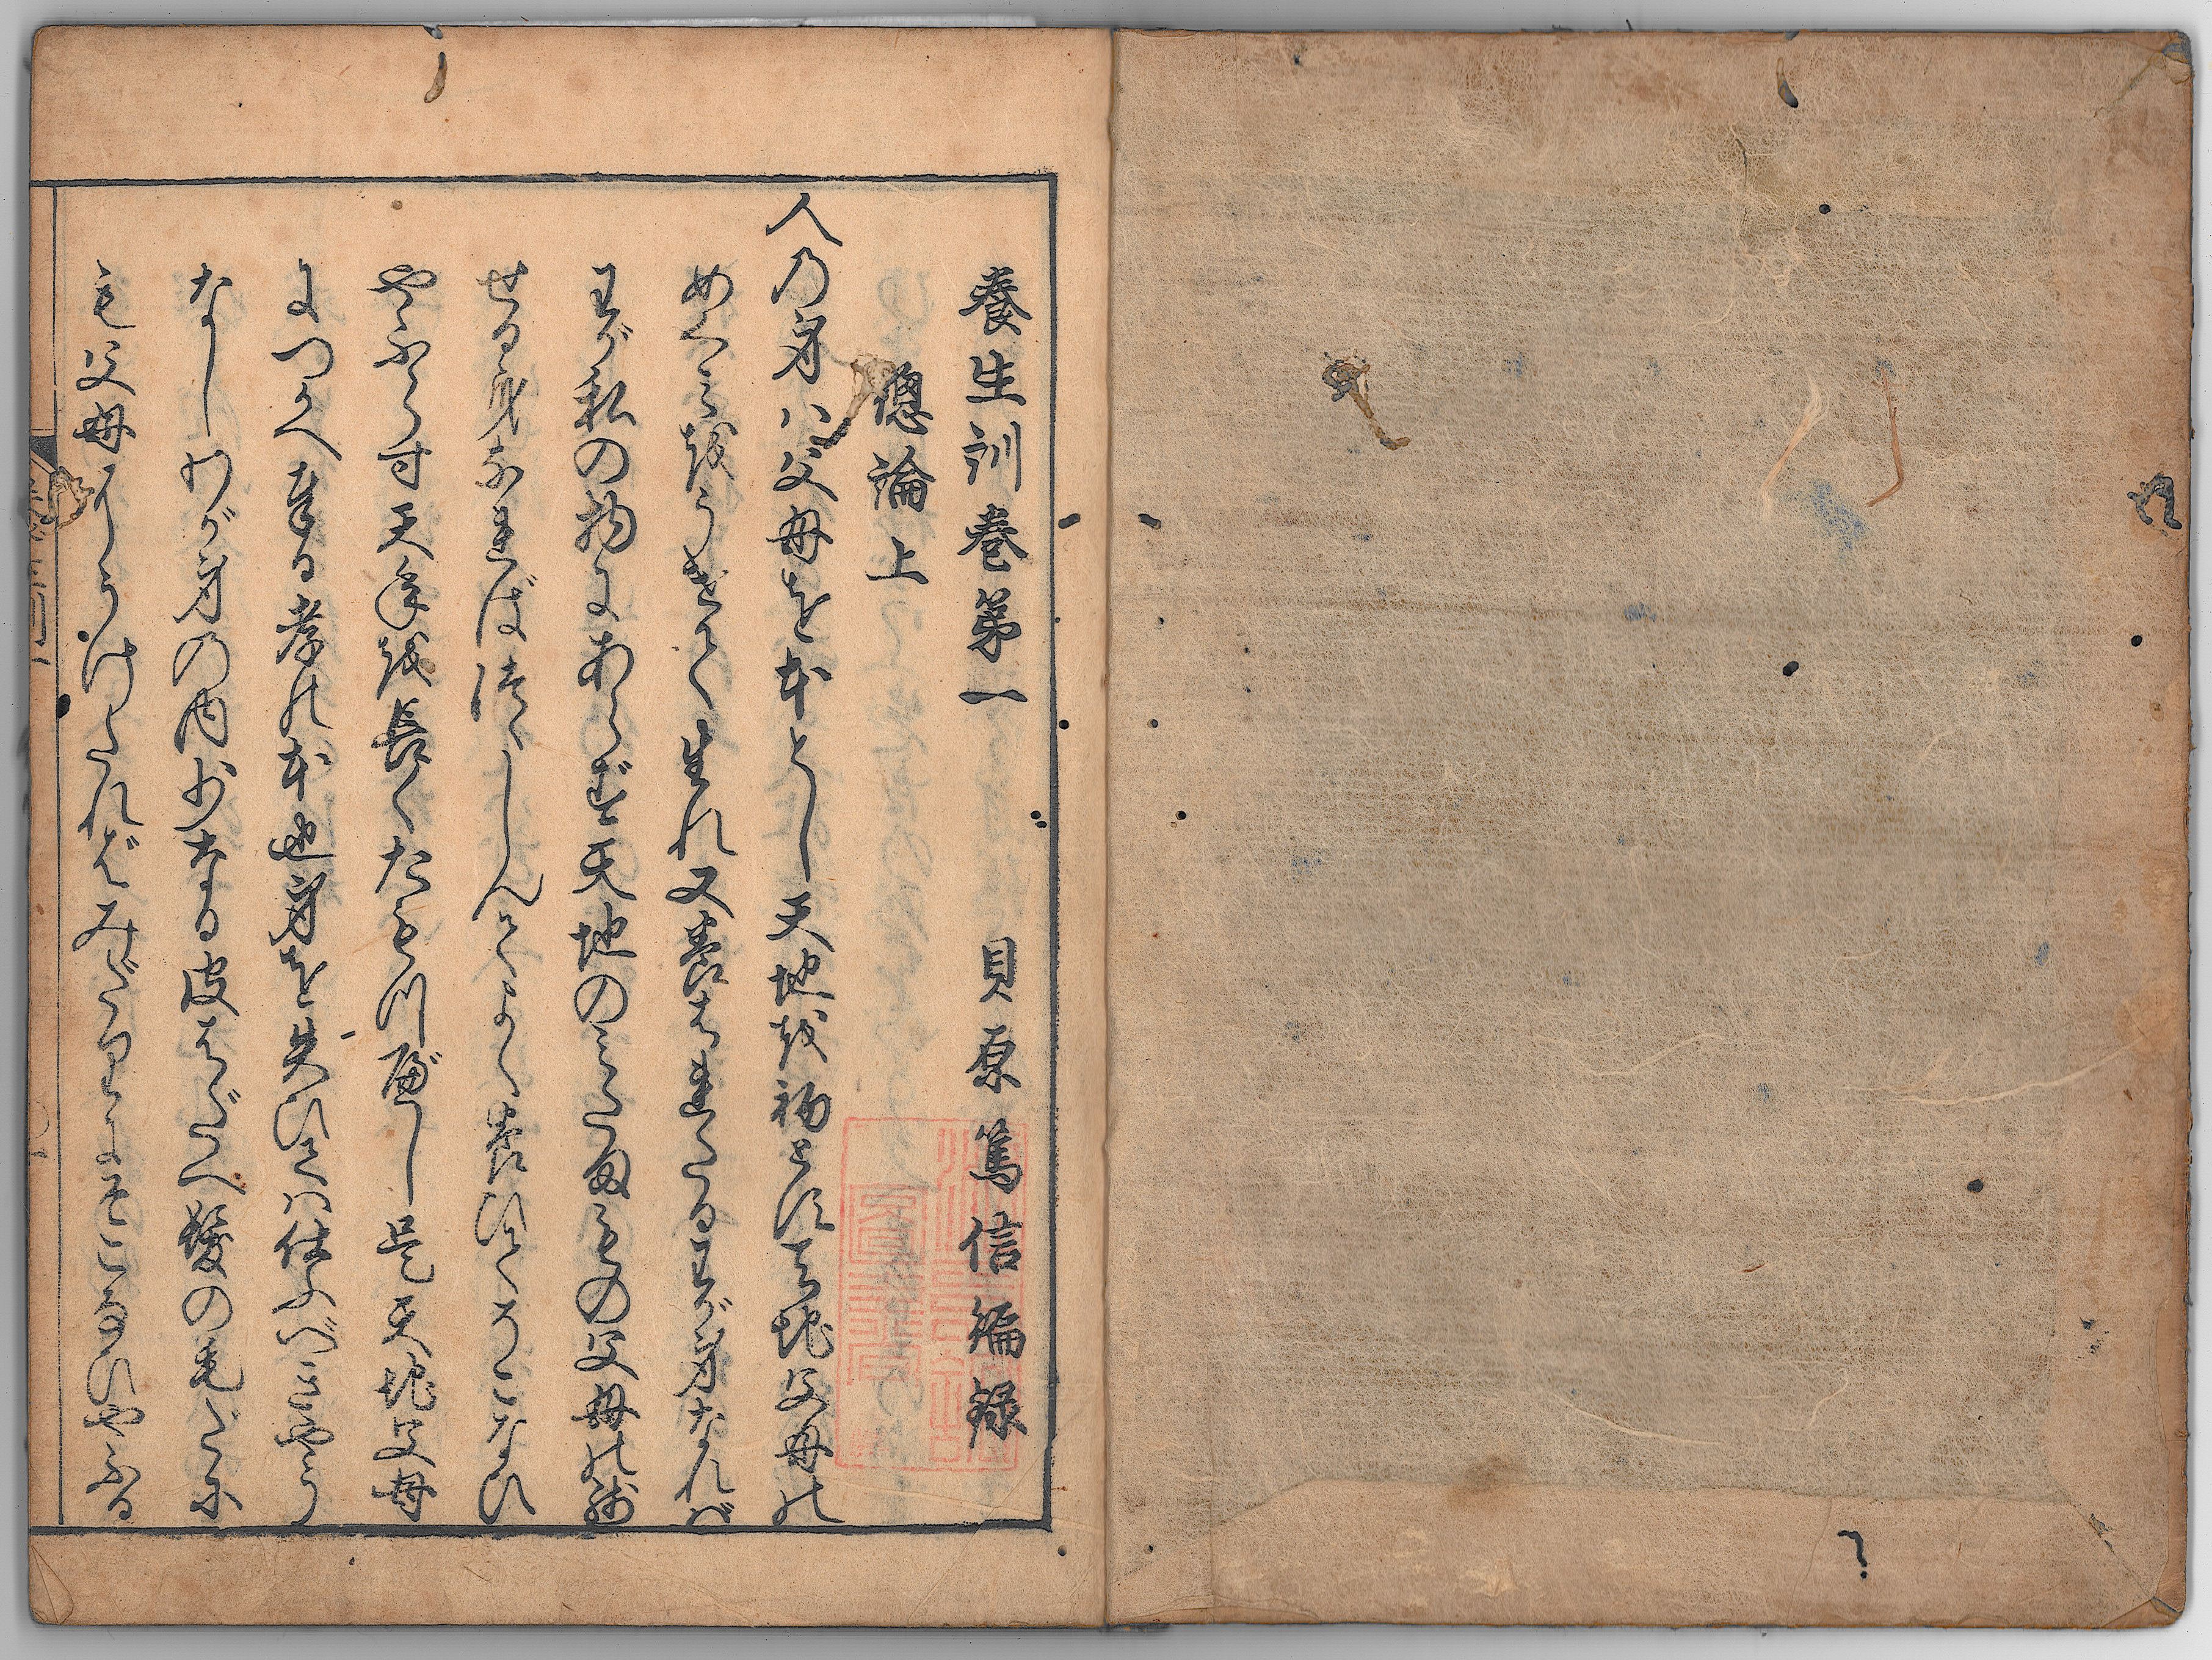 養生訓巻第一　貝原篤信編録
總論上
人の身ハ父母を本とし天地を初とす天地父母の
めぐみをうけて生れ又養はれたるわが身なれバ
わが私の物にあらず天地のみたまもの父母の残
せる身なればつゝしんでよく養ひてそこなひ
やふらす天年を長くたもつべし是天地父母
につかへ奉る孝の本也身を失ひてハ仕ふべきやう
なしわが身の内少なる皮はだへ髪の毛だに
も父母にうけたればみだりにそこなひやふる